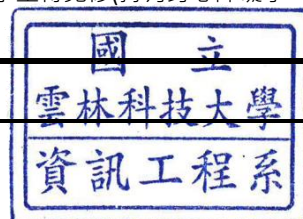 國立
雲林科技大學
資訊工程系